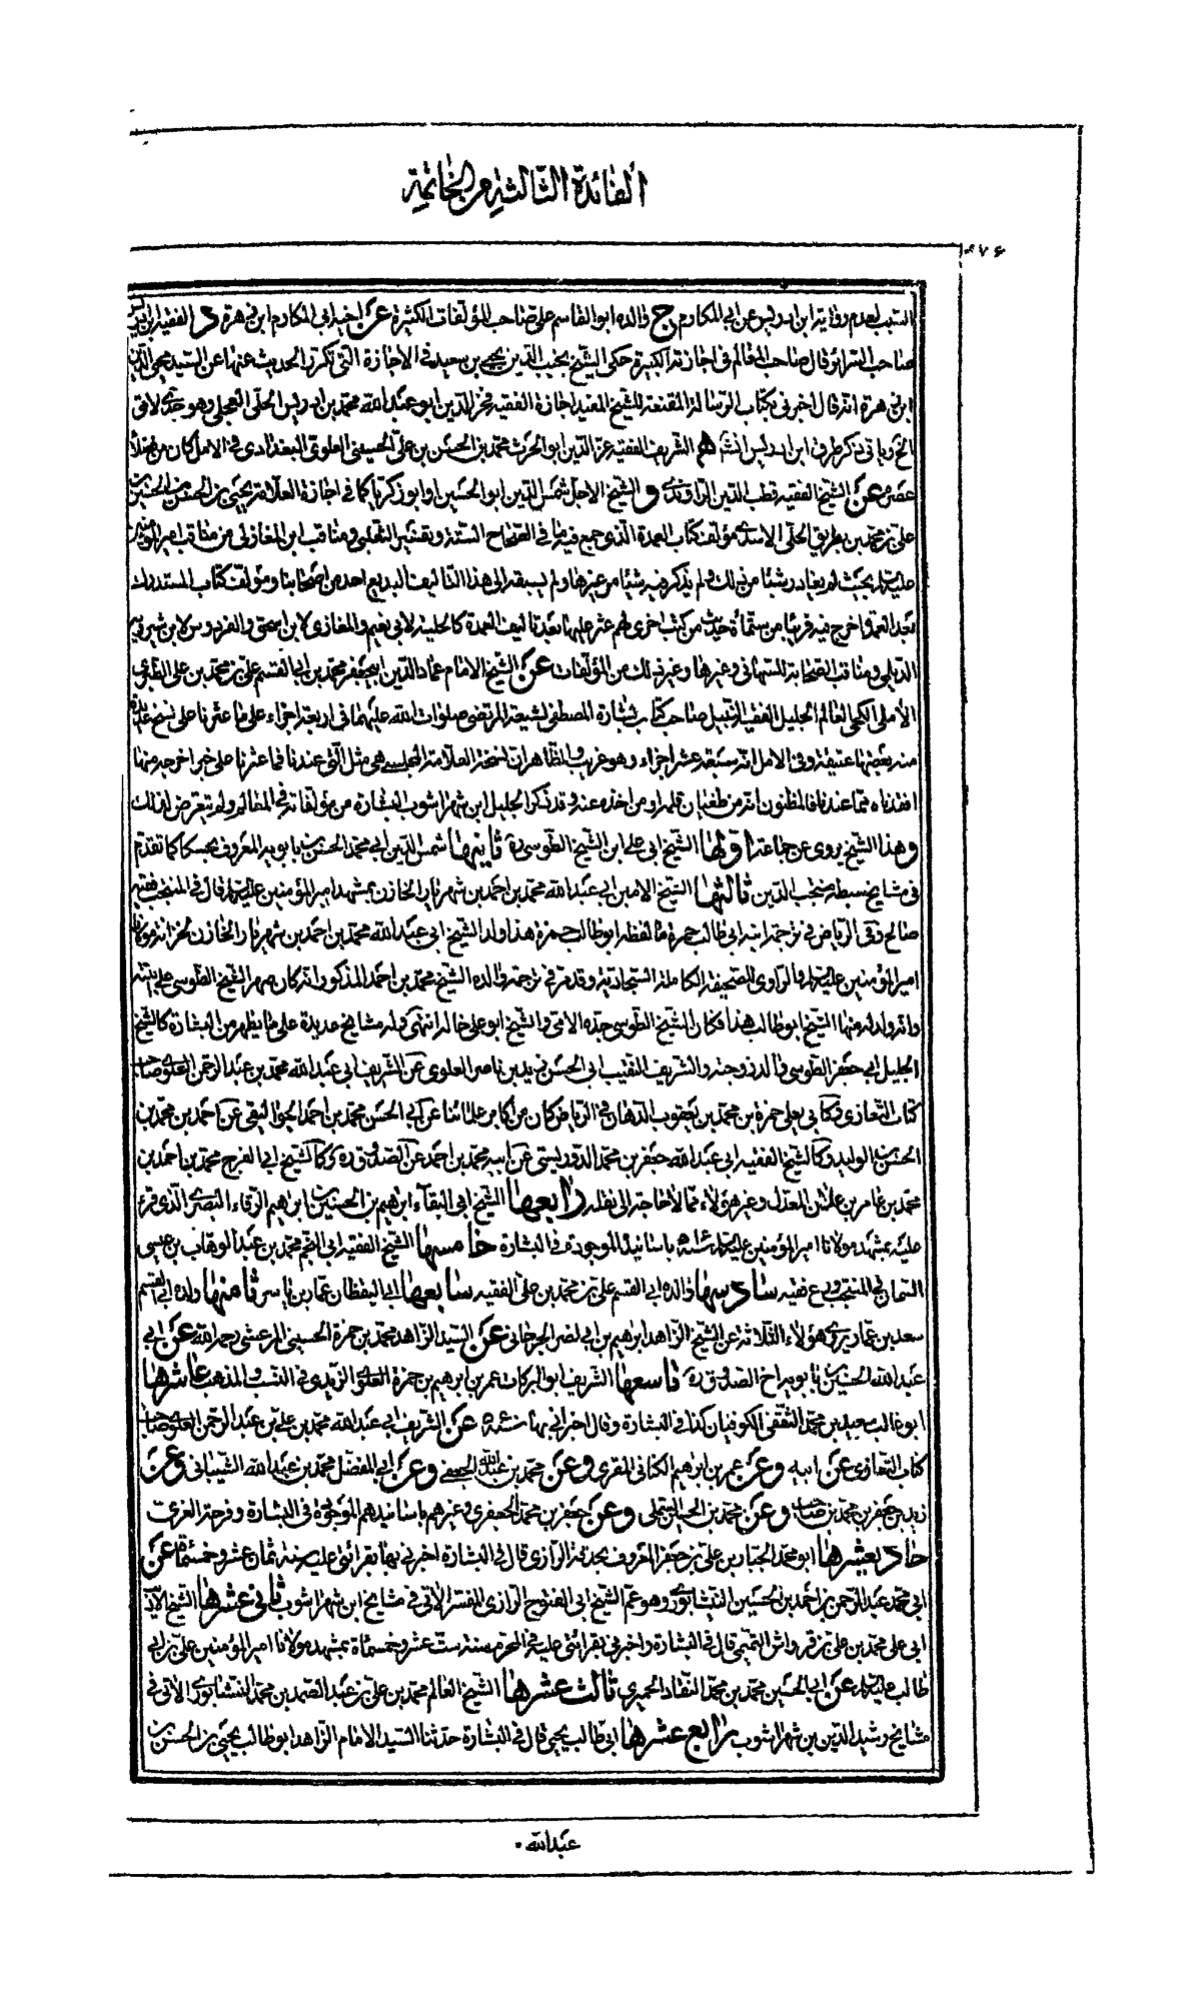 الفائدة الثالثة من الخاتمة
٤٧٦
السبب لعدم رواية ابن ادريس عن ابي المكارم ج والده ابو القاسم علي صاحب المؤلفات الكثيرة عن اخيه ابي المكارم ابن زهرة د الفقيه ابن ادريس
صاحب السرائر قال صاحب المعالم في اجازته الكبيرة حكى الشيخ نجيب الدين يحيى بن سعيد في الاجازة التي تكرر الحديث عنها عن السيد محيي الدين
ابن زهرة انه قال اخبرني بكتاب الرسالة المقنعة للشيخ المفيد اجازة الفقيه فخر الدين ابو عبد الله محمد بن ادريس الحلي العجلي وهو جدي لامي
الخ وياتي ذكر طرق ابن ادريس انشم هم الشريف الفقيه عز الدين ابو الحرث محمد بن الحسن بن علي الحسيني العلوي البغدادي في الامل كان من فضلاء
عصره عن الشيخ الفقيه قطب الدين الراوندي و الشيخ الاجل شمس الدين ابو الحسين او ابو زكريا كما في اجازة العلامة يحيى بن الحسن بن الحسين بن
علي بن محمد بن بطريق الحلي الاسدي مؤلف كتاب العمدة الذي جمع فيه ما في الصحاح الستة وتفسير الثعلبي ومناقب ابن المغازلي من مناقب امير المؤمنين
عليه السلام بحيث لم يغادر شيئا من ذلك ولم يذكر فيه شيئا من غيرها ولم يسبقه الى هذا التاليف البديع احد من اصحابنا ومؤلف كتاب المستدرك
بعد العمدة اخرج فيه قريبا من ستمأة حديث من كتب اخرى لهم عثر عليها بعد تاليف العمدة كالحلية لابي نعيم والمغازي لابن اسحق والفردوس لابن شيرويه
الديلمي ومناقب الصحابة للسمعاني وغيرها وغير ذلك من المؤلفات عن الشيخ الامام عماد الدين ابي جعفر محمد بن ابي القسم علي بن محمد بن علي الطبري
الآملي الكجي العالم الجليل الفقيه النبيل صاحب كتاب بشارة المصطفى لشيعة المرتضى صلوات الله عليهما في اربعة اجزاء على ما عثرنا على نسخ عديدة
منه بعضها عتيقة وفي الامل انه سبعة عشر اجزاء وهو غريب والظاهر ان نسخة العلامة المجلسي هي مثل التي عندنا فما عثرنا على خبر اخرجه منها
افقدناه مما عندنا فالمظنون انه من طغيان قلمه او من اخذه عنه وقد ذكر الجليل ابن شهر اشوب البشارة من مؤلفاته في المعالم ولم يتعرض لذلك
وهذا الشيخ يروى عن جماعة اولها الشيخ ابي علي ابن الشيخ الطوسي ره ثانيها شمس الدين ابي محمد الحسن بن بابويه المعروف بحسكا كما تقدم
في مشايخ سبطه منتجب الدين ثالثها الشيخ الامين ابي عبد الله محمد بن احمد بن شهريار الخازن بمشهد امير المؤمنين عليه السلام قال في المنتجب فقيه
صالح وفي الرياض في ترجمة ابنه ابي طالب حمزة ما لفظه ابو طالب حمزة هذا ولد الشيخ ابي عبد الله محمد بن احمد بن شهريار الخازن لخزانة مولانا
امير المؤمنين عليه السلام والراوي للصحيفة الكاملة السجادية وقد مر في ترجمة والده الشيخ محمد بن احمد المذكور انه كان صهر الشيخ الطوسي على بنته
وانه ولد له منها الشيخ ابو طالب هذا فكان الشيخ الطوسي جده الامي والشيخ ابو علي خاله انتهى وله مشايخ عديدة على ما يظهر من البشارة كالشيخ
الجليل ابي جعفر الطوسي والد زوجته والشريف النقيب ابي الحسن زيد بن ناصر العلوي عن الشريف ابي عبد الله محمد بن عبد الرحمن العلوي صاحب
كتاب التعازي وكابي يعلي حمزة بن محمد بن يعقوب الدهان في الرياض كان من اكابر علمائنا عن ابي الحسن محمد بن احمد الجواليقي عن احمد بن محمد بن
الحسن بن الوليد وكالشيخ الفقيه ابي عبد الله جعفر بن محمد الدوريستي عن ابيه محمد بن احمد عن الصدوق ره وكالشيخ ابي الفرج محمد بن احمد بن
محمد بن عامر بن علان المعدل وغير هؤلاء مما لا حاجة الى نقله رابعها الشيخ ابي البقاء ابراهيم بن الحسين بن ابراهيم الرفاء البصري الذي قرء
عليه بمشهد مولانا امير المؤمنين عليه السلام باسانيده الموجودة في البشارة خامسها الشيخ الفقيه ابي النجم محمد بن عبد الوهاب بن عيسى
السمان في المنتجب ورع فقيه سادسها والده ابي القسم علي بن محمد بن علي الفقيه سابعها ابي اليقظان عمار بن ياسر ثامنها ولده ابي القسم
سعد بن عمار يروى هؤلاء الثلاثة عن الشيخ الزاهد ابراهيم بن ابي نصر الجرجاني عن السيد الزاهد محمد بن حمزة الحسيني المرعشي رحمه الله عن ابي
عبد الله الحسين بن بابويه اخ الصدوق ره تاسعها الشريف ابو البركات عمر بن ابراهيم بن حمزة العلوي الزيدي في النسب والمذهب عاشرها
ابو غالب سعيد بن محمد الثقفي الكوفيان كذا في البشارة وقال اخبراني بها عن الشريف ابي عبد الله محمد بن علي بن عبد الرحمن العلوي صاحب
كتاب التعازي عن ابيه وعن عمر بن ابراهيم الكناني المقري وعن محمد بن عبد الله الجعفي وعن ابي المفضل محمد بن عبد الله الشيباني وعن
زيد بن جعفر بن محمد بن حاجب وعن محمد بن الحسين التيملي وعن جعفر بن محمد الجعفري وغيرهم باسانيدهم الموجودة في البشارة وفرحة الغري
حاديعشرها ابو محمد الجبار بن علي بن جعفر المعروف بحدقة الرازي قال في البشارة اخبرني بها بقرائتي عليه سنة ثمان عشر وخمسمأة عن
ابي محمد عبد الرحمن بن احمد بن الحسين النيشابوري وهو عم الشيخ ابي الفتوح الرازي المفسر الآتي في مشايخ ابن شهر اشوب ثاني عشرها الشيخ الاديب
ابي علي محمد بن علي بن قرواش التميمي قال في البشارة واخبرني بقرائتي عليه في المحرم سنة ست عشر وخمسمأة بمشهد مولانا امير المؤمنين علي بن ابي
طالب عليه السلام عن ابي الحسين محمد بن محمد النقاد الحميري ثالث عشرها الشيخ العالم محمد بن علي بن عبد الصمد بن محمد النيشابوري الآتي في
مشايخ رشيد الدين بن شهر اشوب رابع عشرها ابي طالب يحيى قال في البشارة حدثنا السيد الامام الزاهد ابو طالب يحيى بن الحسن بن
عبد الله